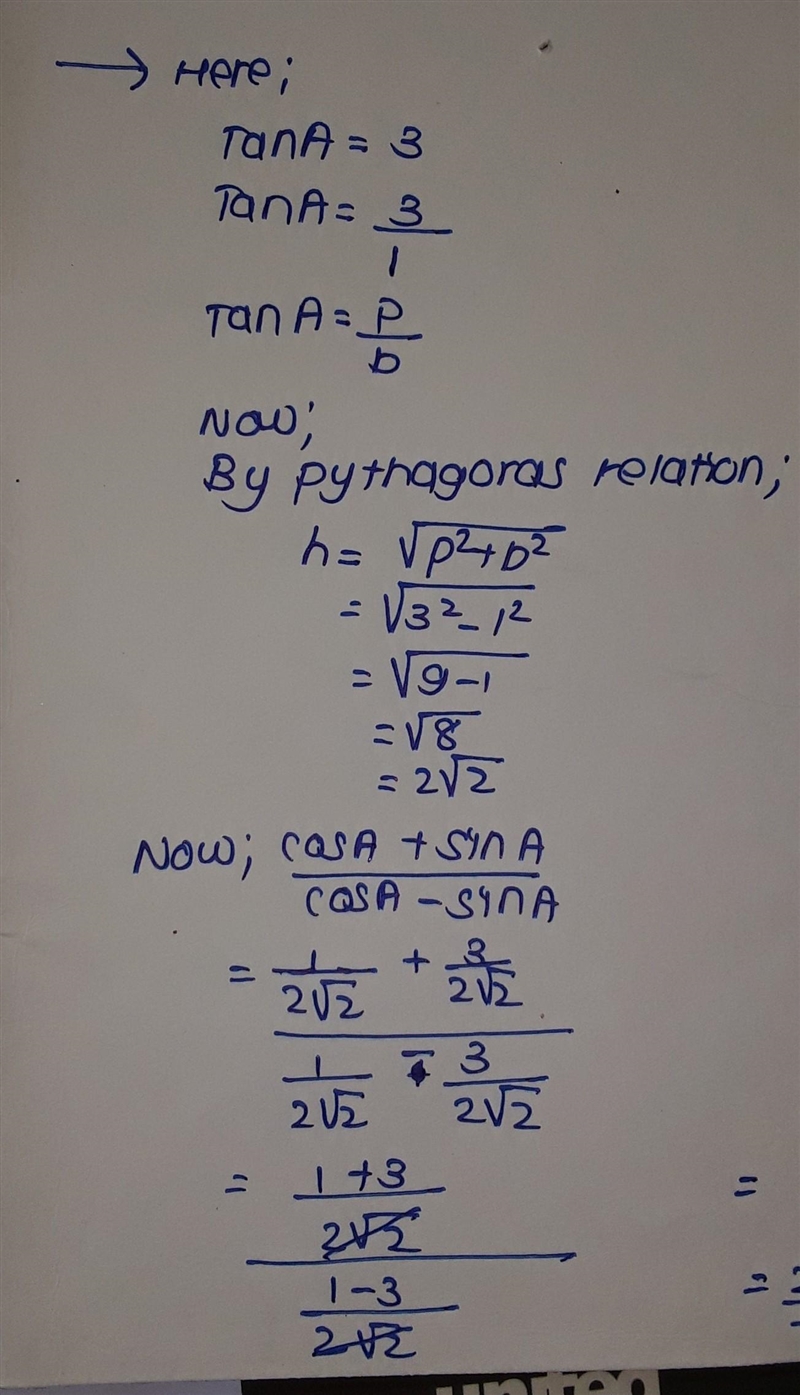 → Here;
TanA = 3
TanA = 3/1
TanA = P/b
Now;
By pythagoras relation;
h = √p²+b²
= √3²-1²
= √9-1
= √8
= 2√2
Now; cosA + sinA / cosA - sinA
= 1/2√2 + 3/2√2
1/2√2 - 3/2√2
= 1+3/2√2
1-3/2√2
=
=